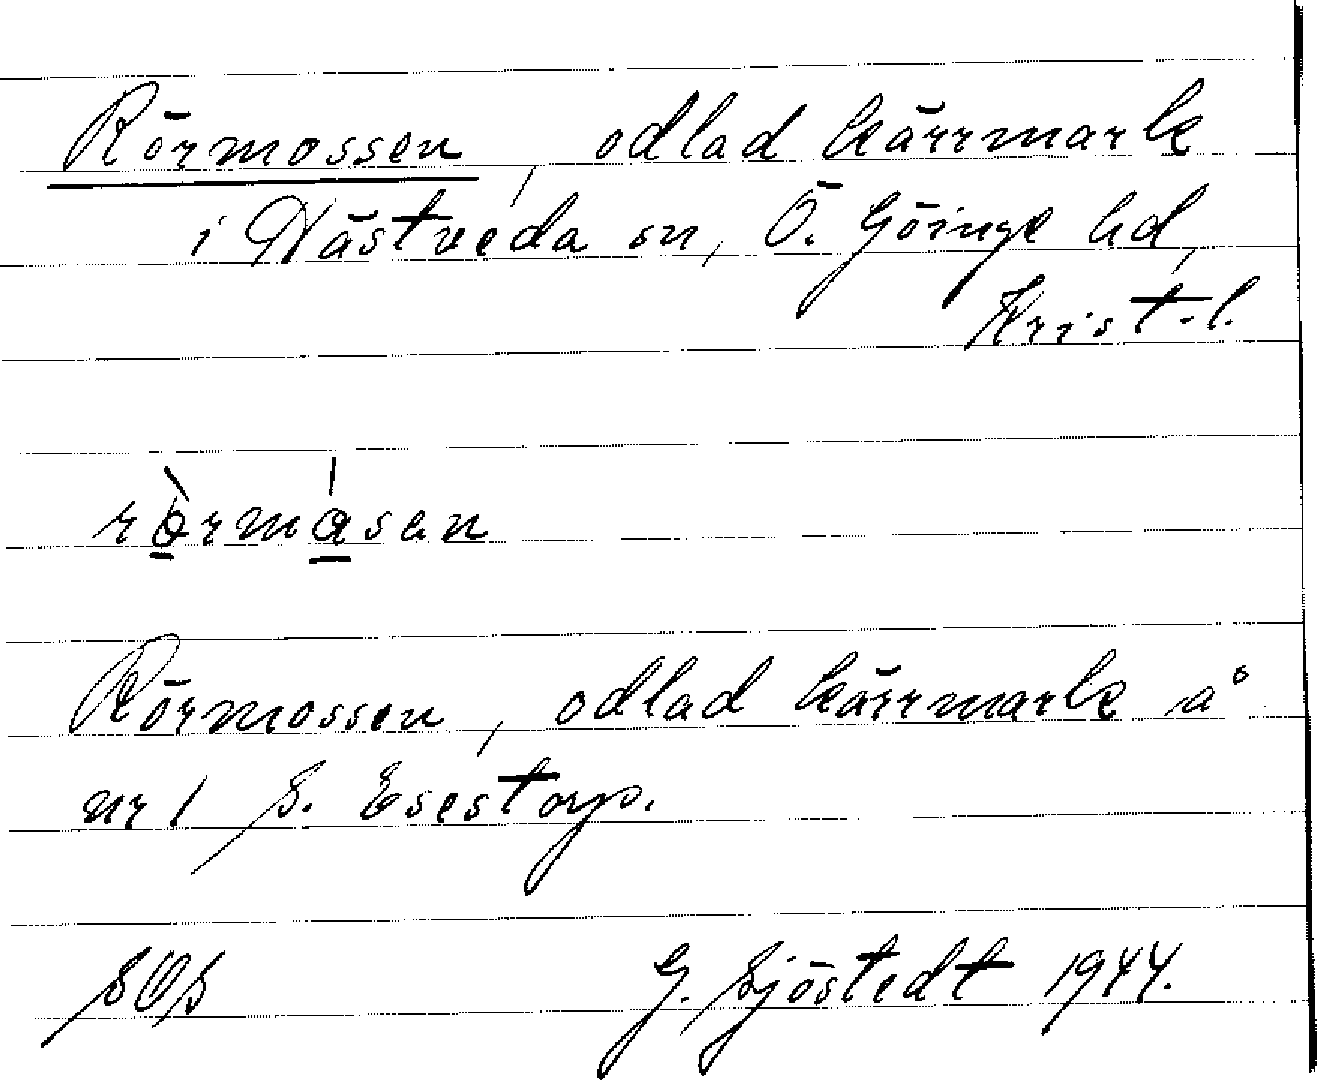 Rörmossen, odlad kärrmark
i Nästveda sn, Ö. Göinge hd,
Krist.l.
rö̀rmåsen
Rörmossen, odlad kärrmark å
nr 1 S. Esestorp.
SOS G. Sjöstedt 1944.